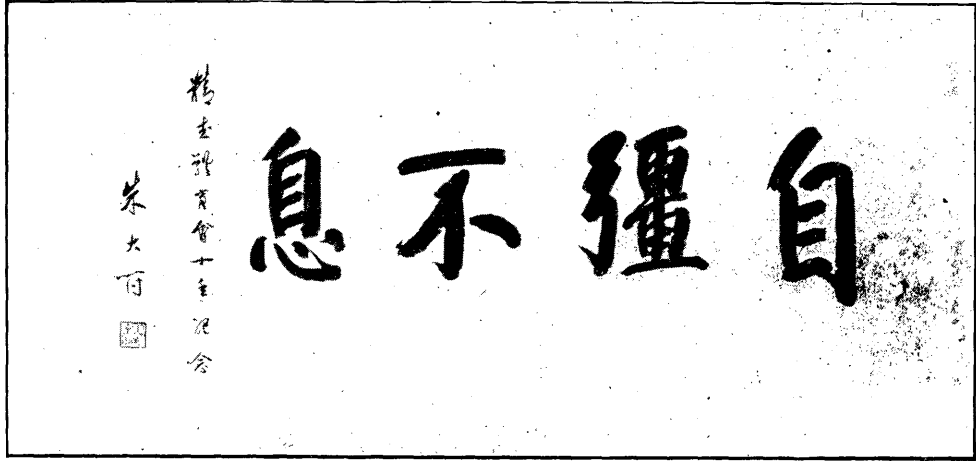 自彊不息
精武體育會十年記念
朱大符